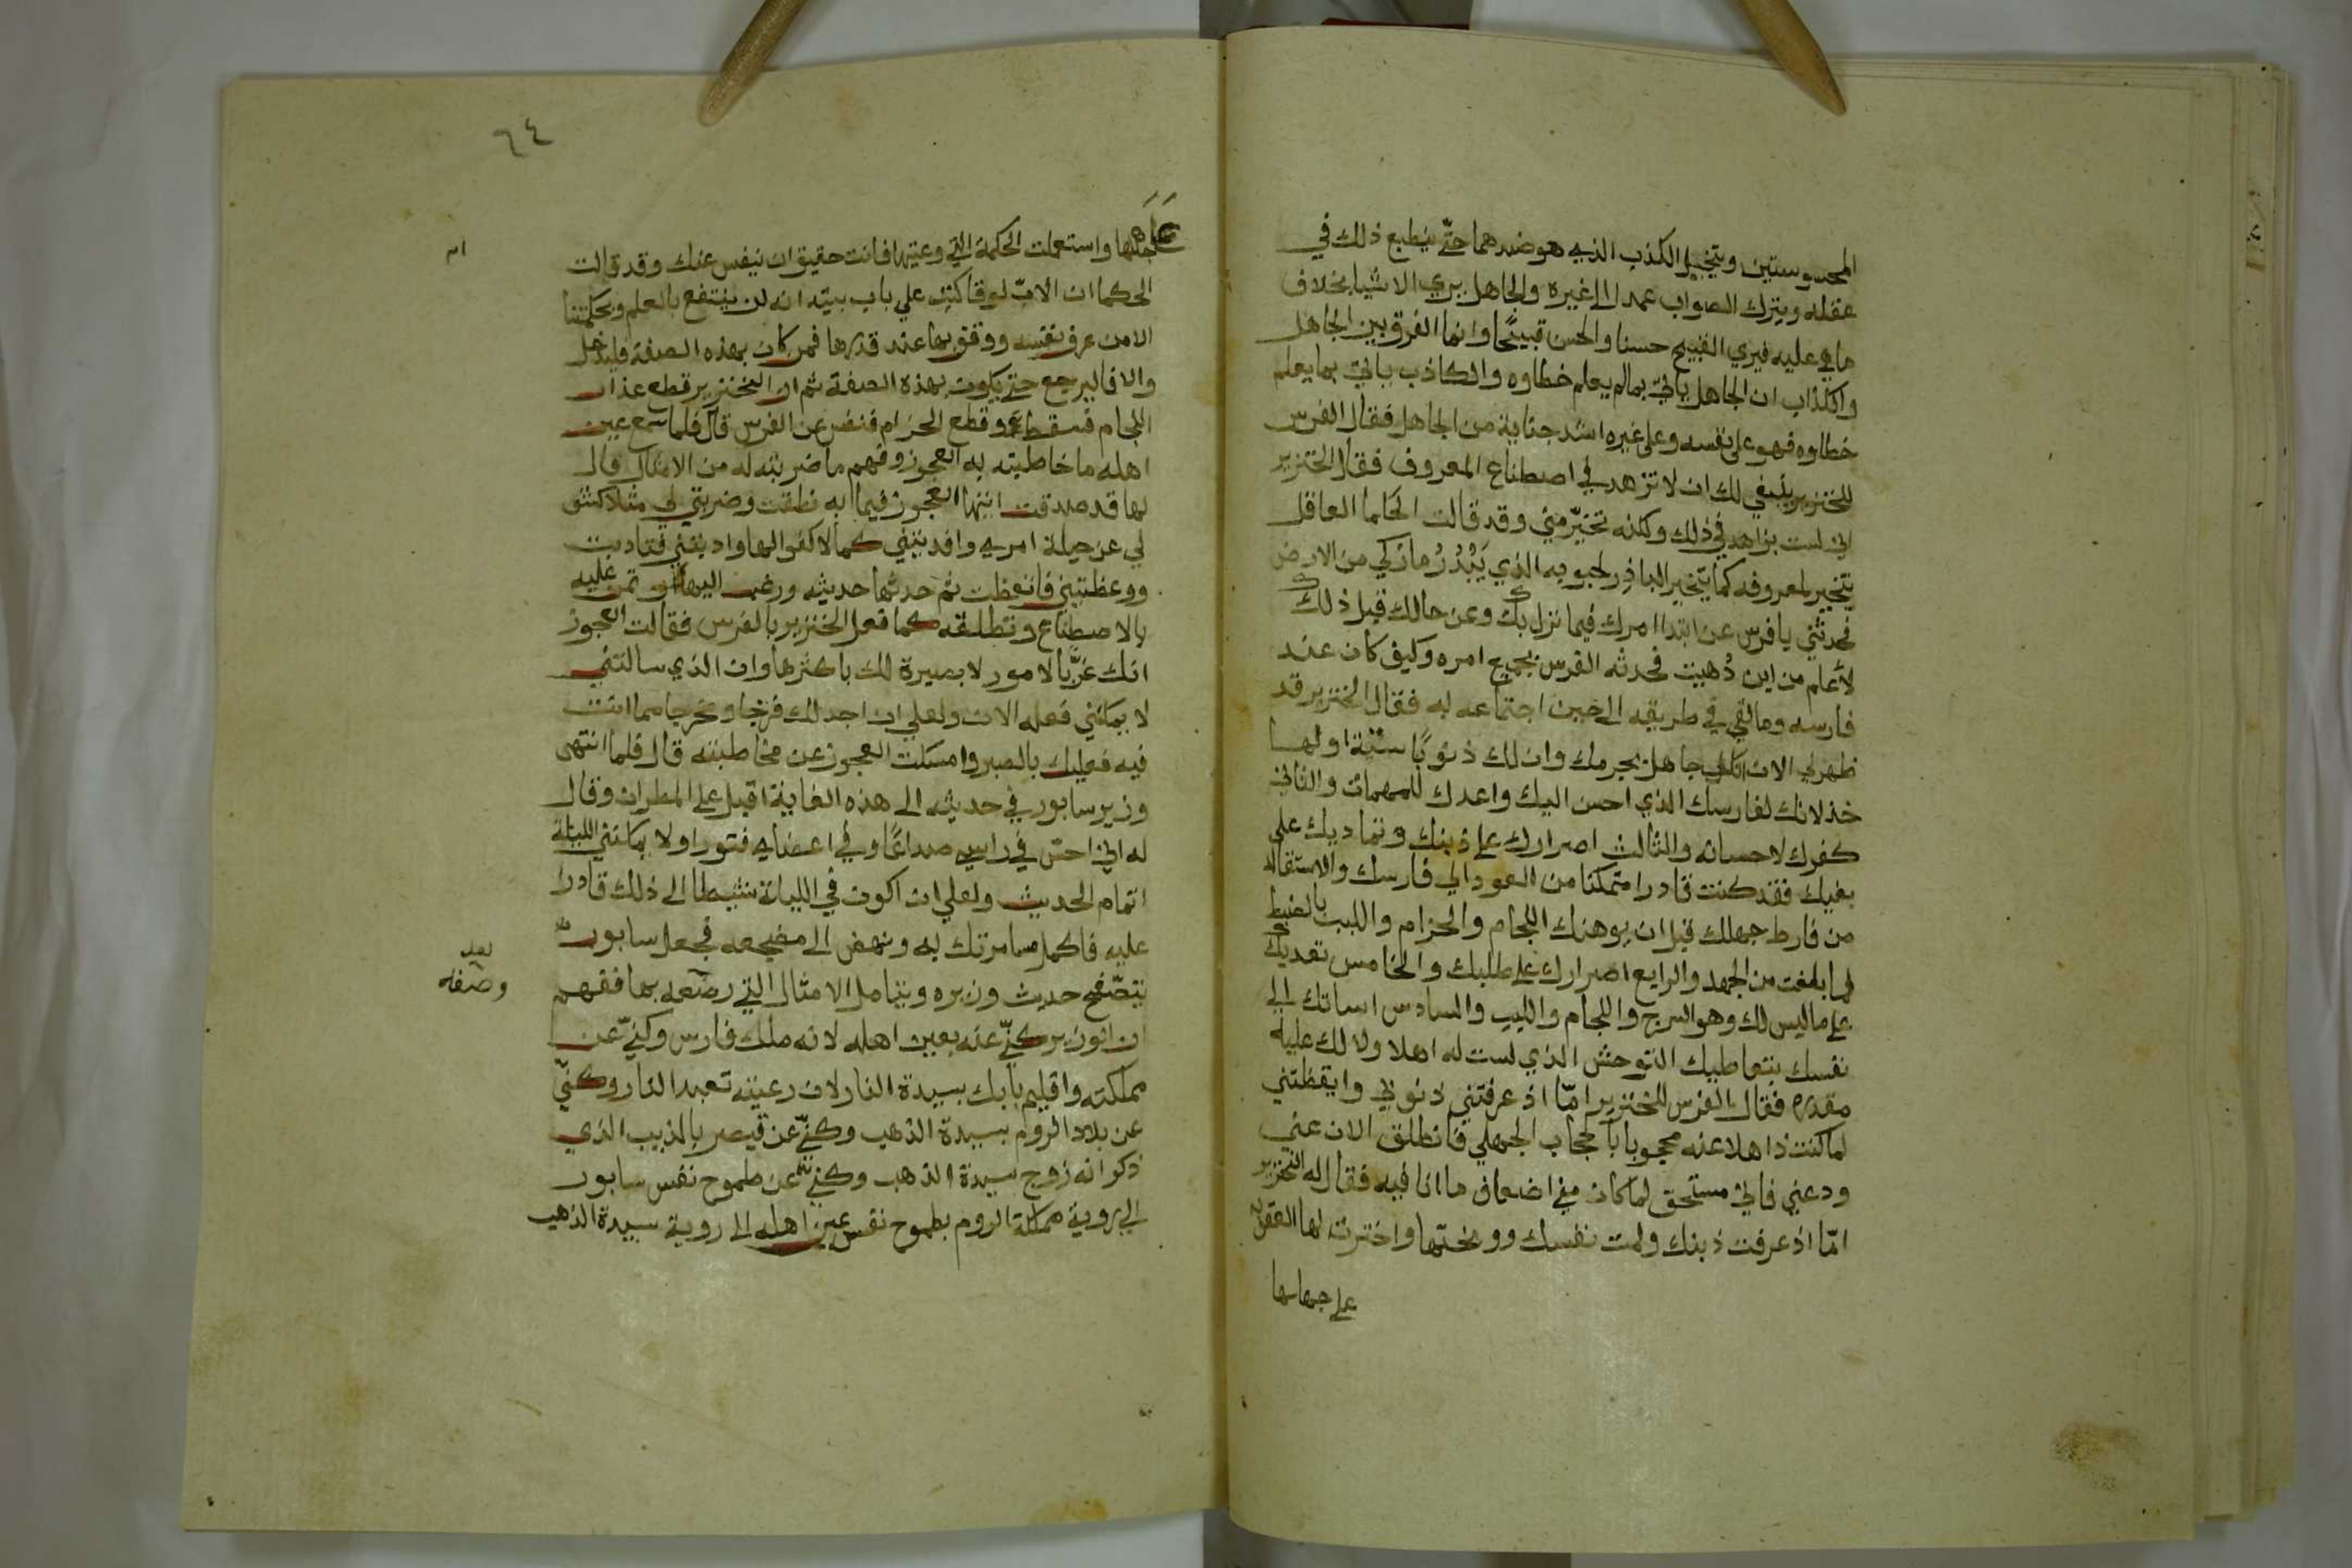 المحسوستين ويتخيل الكذب الذي هو ضدهما حتّي ينطبع ذلك في
عقله ويترك الصواب عمدا الي غيره والجاهل يري الاشيا بخلاف
ماهي عليه فيري القبيح حسنا والحسن قبيحًا وانما الفرق بين الجاهل
والكذاب ان الجاهل ياتي بمالم يعلم خطاوه والكاذب ياتي بما يعلم
خطاوه فهو علي نفسه وعلي غيره اشد جناية من الجاهل فقال الفرس
للخنزير ينبغي لك ان لا تزهد في اصطناع المعروف فقال الخنزير
اني لست بزاهد في ذلك وكلنه تخيّر مني وقد قالت الحكما العاقل
يتخير لمعروفه كما يتخير الباذر لحبوبه الذي يَبْذُرُ مازكي من الارض
فحدثني يا فرس عن ابتدا امرك فيما نزل بك وعن حالك قبل ذلك
لأعلم من اين دُهيت فحدثه الفرس بجميع امره وكيف كان عند
فارسه وما لقي في طريقه الي حين اجتماعه به فقال الخنزير قد
ظهر لي الان انك جاهل بجرمك وان لك ذنوبًا ستّة اولها
خذلانك لفارسك الذي احسن اليك واعدك للمهمات والثاني
كفرك لاحسانه والثالث اصرارك علي ذنبك وتماديك علي
بغيك فقد كنت قادرا متمكنا من العود الي فارسك والاستقاله
من فارط جهلك قبل ان يوهنك اللجام والحزام واللبب بالضبط
لما بلغت من الجهد والرابع اصرارك علي طلبك والخامس تعديك
علي ماليس لك وهو السرج واللجام واللبب والسادس اساتك الي
نفسك بتعاطيك التوحش الذي لست له اهلا ولا لك عليه
مقدره فقال الفرس للخنزير امّا اذ عرفتني ذنوبي وايقظتني
لما كنت ذاهلا عنه محجوبا بحجاب الجهل فانطلق الان عني
ودعني فاني مستحق لما كان مني اضعاف ما انا فيه فقال له الخنزير
امّا اذ عرفت ذنبك ولمت نفسك ووبختها واخترت لها العقوبة
علي جهلها
٦٤
علي جهلها واستعملت الحكمة التي وعيتها فانت حقيق ان ينفس عنك وقد قالت
الحكما ان الابّ لوقا كتب علي باب بيته انه لن ينتفع بالعلم وبحكمتنا
الا من عرف نفسه ووقف بها عند قدرها فمن كان بهذه الصفة فليدخل
والا فاليرجع حتي يكون بهذه الصفة ثم ان الخنزير قطع عذار
اللجام فسقط وقطع الحزام فنفس عن الفرس قال فلما سمع عين
اهله ما خاطبته به العجوز وفهم ما ضربته له من الامثال قال
لها قد صدقت ايتها العجوز فيما به نطقت وضربتي لي مثلا كشف
لي عن حيلة امري وافدتيني كما لا كفو الها وادبتني فتادبت
ووعظتيني فاتعظت ثم حدثها حديثه ورغب اليها تمن عليه
بالاصطناع وتطلقه كما فعل الخنزير بالفرس فقالت العجوز
انك غرّ بالامور لا بصيرة لك باكثرها وان الذي سالتني
لا يمكنني فعله الان ولعلي ان اجد لك فرجا ومخرجا مما انت
فيه فعليك بالصبر وامسكت العجوز عن مخاطبته قال فلما انتهي
وزير سابور في حديثه الي هذه الغاية اقبل علي المطران وقال
له اني احس في راسي صداعًا وفي اعضاي فتورا ولا يمكنني الليلة
اتمام الحديث ولعلي ان اكون في الليلة نشيطا الي ذلك قادرا
عليه فاكمل مسامرتك به ونهض الي مضجعه فجعل سابور
يتصّفح حديث وزيره ويتامل الامثال التي رضّعه بها ففهم
بعد
وصفه
ان الوزير كنّي عنه بعين اهله لانه ملك فارس وكنّي عن
مملكته واقليم بابك بسيدة النار لان رعيته تعبد النار وكنّي
عن بلاد الروم بسيدة الذهب وكنّي عن قيصر بالمذبب الذي
ذكر انه زوج سيدة الذهب وكني عن طموح نفس سابور
الي روية مملكة الروم بطموح نفس عين اهله الي روية سيدة الذهب